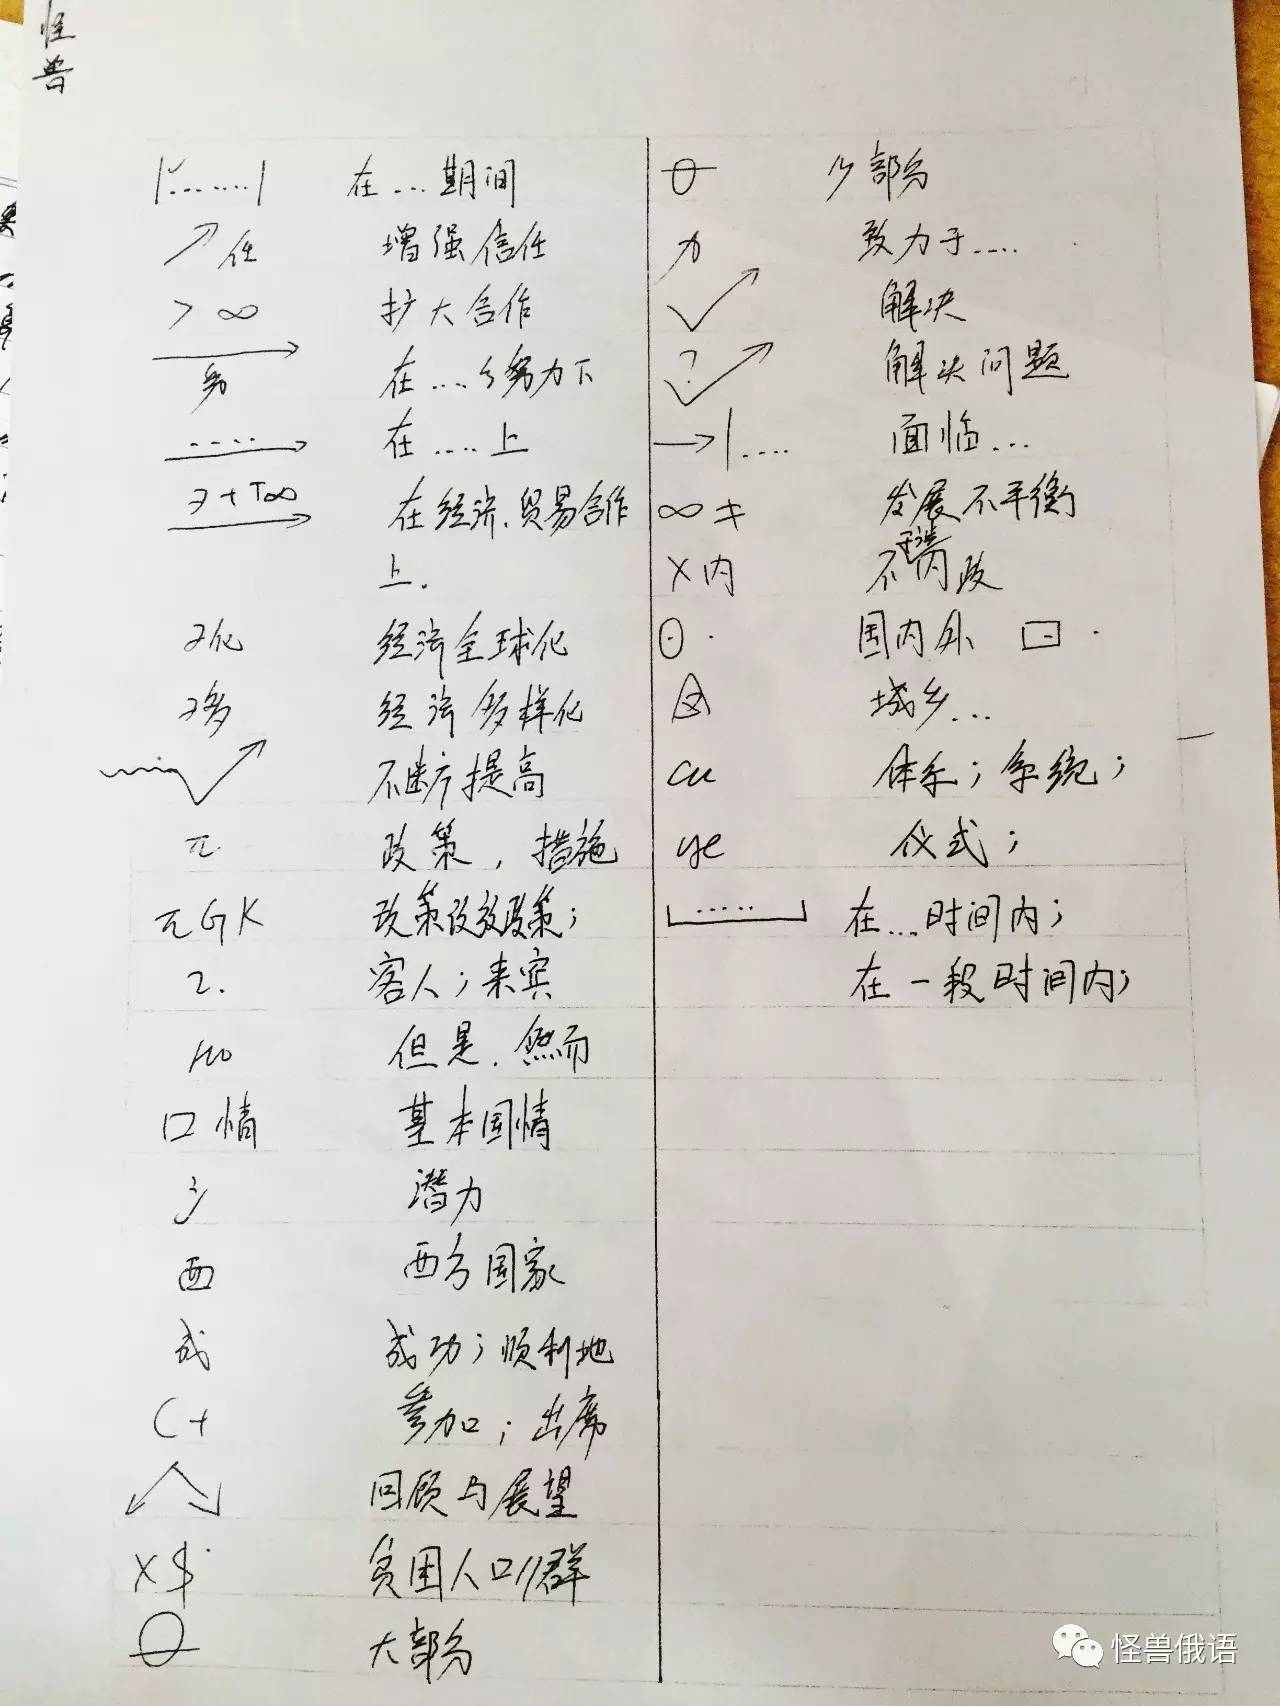 怪
兽
|.......| 在...期间
↗任 增强信任
> ∞ 扩大合作
努 在....努力下
.... 在....上
э+T∞ 在经济、贸易合作
上.
э化 经济全球化
э多 经济多样化
不断提高
π. 政策，措施
πGK
2. 客人；来宾
но 但是.然而
口情 基本国情
氵 潜力
西 西方国家
成 成功；顺利地
C+ 参加；出席
回顾与展望
X$ 贫困人口/群
大部分
少部分
力 致力于....
解决
? 解决问题
→|.... 面临...
∞≠ 发展不平衡
X内 不干涉内政
国内外
城乡...
cu 体系；系统；
ye 仪式；
..... 在...时间内；
在一段时间内；
怪兽俄语